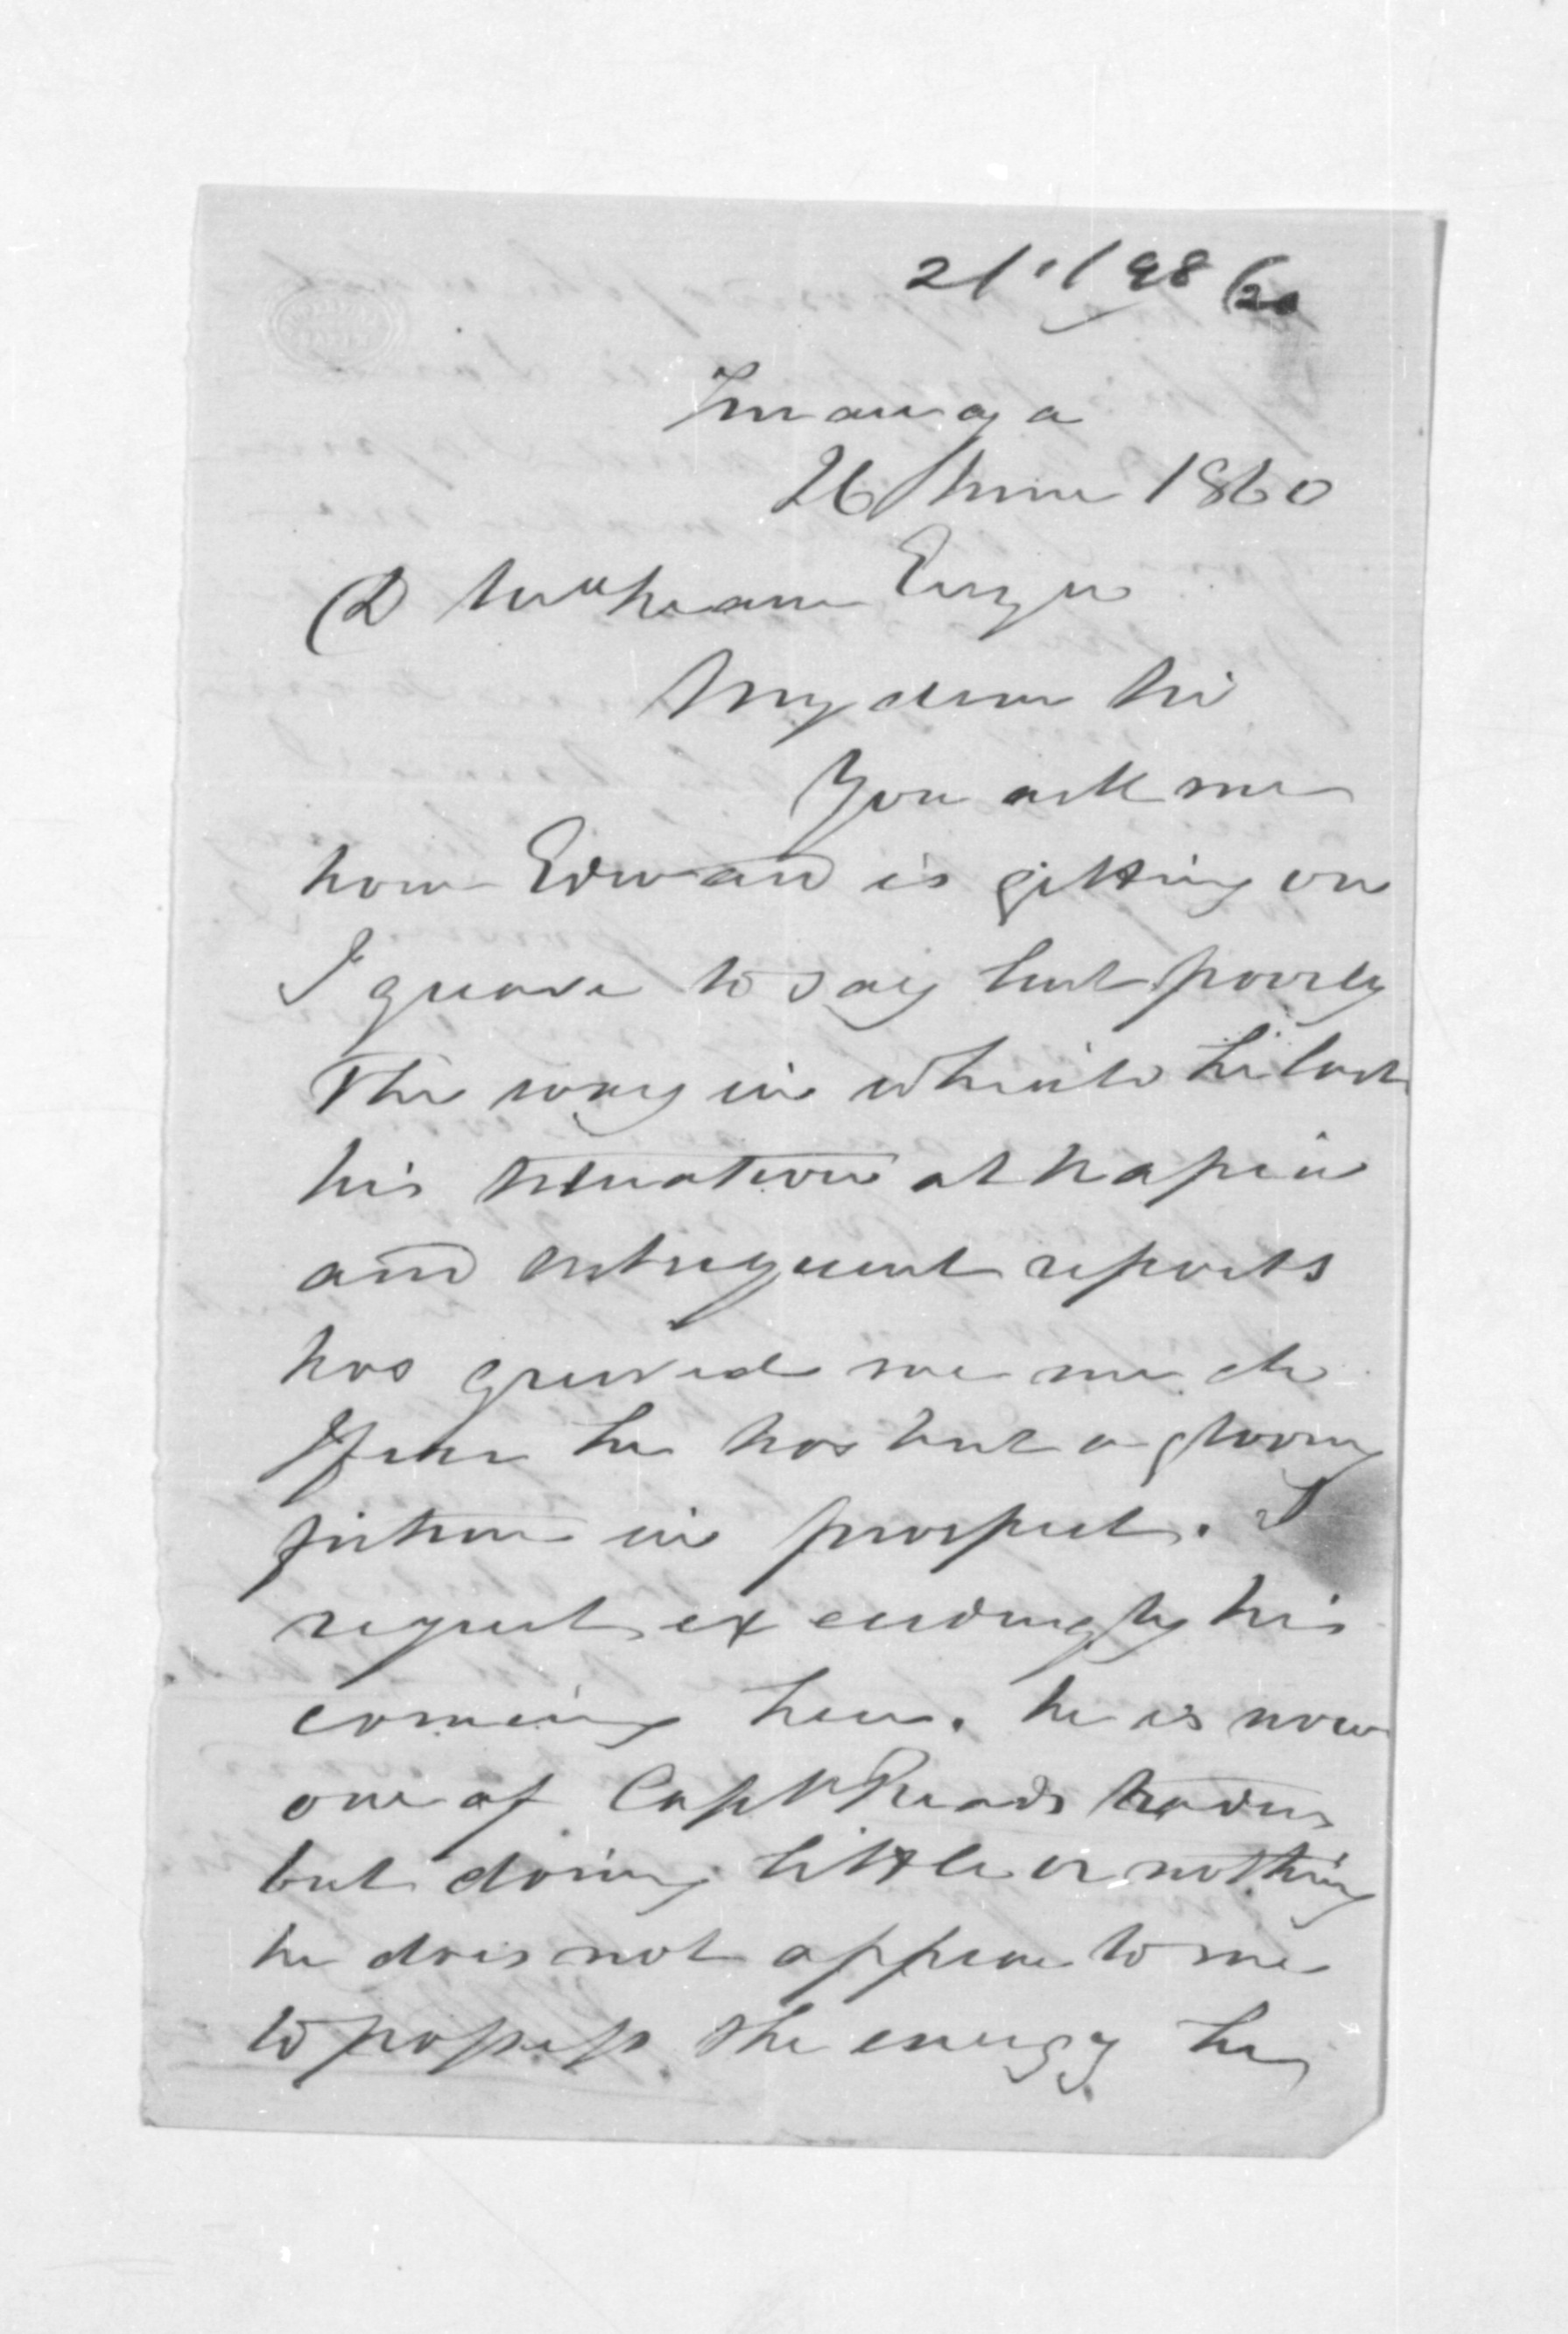 21/1/98 (20
Turanga
26 June 1860
D McLean Esqre
My dear Sir
You ask me
how Edward is getting on
I grieve to say but poorly
The way in which he lost
his situation at Napier
and subsequent reports
has grieved me much
I fear he has but a gloomy
future in prospect. I
regret exceedingly his
coming here. he is now
one of Captn Reads traders
but doing little or nothing
he does not appear to me
to possess the energy he